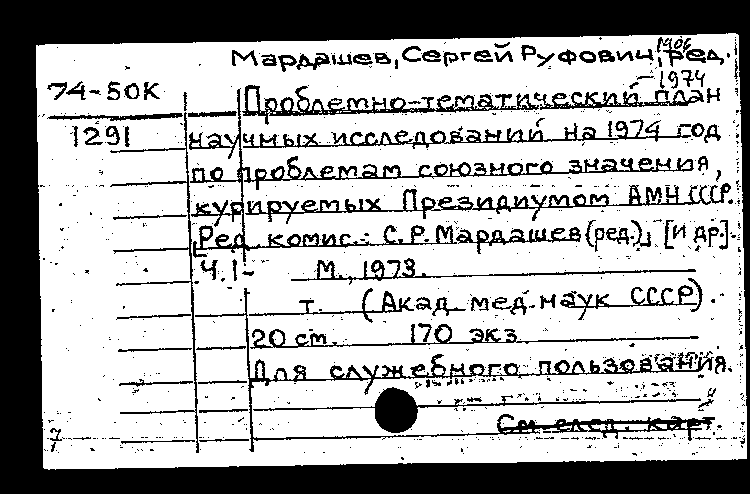 Мардашев, Сергей Руфович, ред.
1906
-1974
74-50К
Проблемно-тематический план
1291
научных исследований на 1974 год
по проблемам союзного значения,
курируемых Президиумом АМН СССР.
[Ред. комис.: С.Р. Мардашев (ред.), [и др].
Ч.1-
М., 1973.
т. (Акад. мед. наук СССР).
20 см. 170 экз.
Для служебного пользования.
См. след. карт.
7